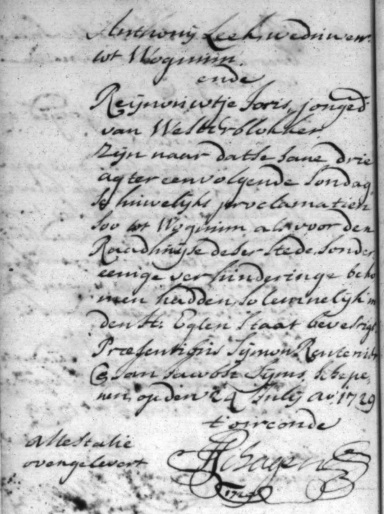 Anthonij Leek, weduwenr
tot Wognum.
ende
Reijnouwtje Joris, jonged
van Westerblokker
zijn naar datse haare drie
agtereenvolgende sondag
se huwelijks proclamatien
soo tot Wognum, als voor den
Raadhuijse deser stede, sonder
eenige verhinderinge beko
men hadden, solemnelijk in
den H: Egten Staat bevestigt
Præsentibus Sijmon
& Jan Jacobsz Sijms, schepe
nen, op den 24 Julij Ao 1729
t oirconde
attestatie
overgelevert
1729